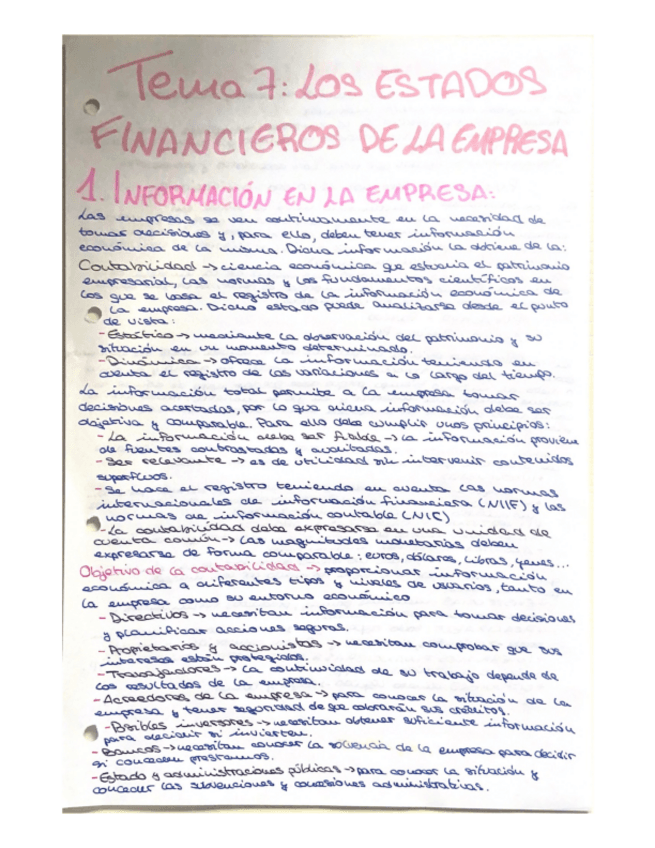 Tema 7: LOS ESTADOS
FINANCIEROS DE LA EMPRESA
1. INFORMACIÓN EN LA EMPRESA:
Las empresas se ven continuamente en la necesidad de
tomar decisiones y, para ello, deben tener información
económica de la misma. Dicha información la obtiene de la:
Contabilidad → ciencia económica que estudia el patrimonio
empresarial, las normas y los fundamentos científicos en
los que se basa el registro de la información económica de
la empresa. Dicho estado puede analizarse desde el punto
de vista:
- Estático → mediante la observación del patrimonio y su
situación en un momento determinado.
- Dinámica → ofrece la información teniendo en
cuenta el registro de las variaciones a lo largo del tiempo.
La información total permite a la empresa tomar
decisiones acertadas, por lo que dicha información debe ser
objetiva y comparable. Para ello debe cumplir unos principios:
- La información debe ser fiable → la información proviene
de fuentes contrastadas y auditadas.
- Ser relevante → es de utilidad sin intervenir contenidos
superfluos.
- Se hace el registro teniendo en cuenta las normas
internacionales de información financiera (NIIF) y las
normas de información contable (NIC)
- La contabilidad debe expresarse en una unidad de
cuenta común → las magnitudes monetarias deben
expresarse de forma comparable: euros, dólares, libras, yenes...
Objetivo de la contabilidad → proporcionar información
económica a diferentes tipos y niveles de usuarios, tanto en
la empresa como su entorno económico
- Directivos → necesitan información para tomar decisiones
y planificar acciones seguras.
- Propietarios y accionistas → necesitan comprobar que sus
intereses están protegidos.
- Trabajadores → la continuidad de su trabajo depende de
los resultados de la empresa.
- Acreedores de la empresa → para conocer la situación de la
empresa y tener seguridad de que cobrarán sus créditos.
- Posibles inversores → necesitan obtener suficiente información
para decidir si invierten.
- Bancos → necesitan conocer la solvencia de la empresa para decidir
si conceden préstamos.
- Estado y administraciones públicas → para conocer la situación y
conceder las subvenciones y concesiones administrativas.